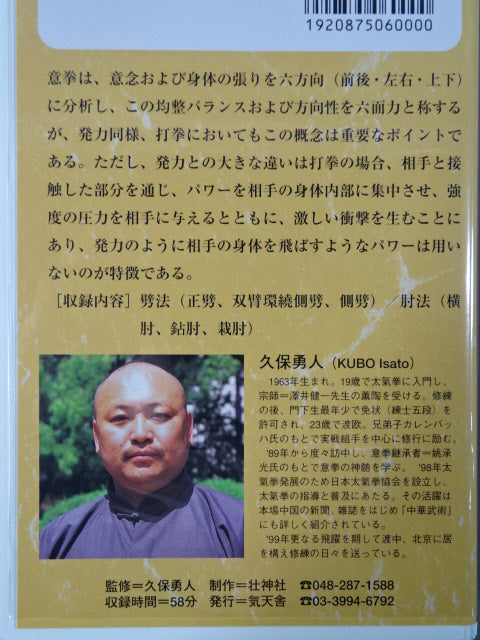 1920875060000
意拳は、意念および身体の張りを六方向（前後・左右・上下）
に分析し、この均整バランスおよび方向性を六面力と称する
が、発力同様、打拳においてもこの概念は重要なポイントで
ある。ただし、発力との大きな違いは打拳の場合、相手と接
触した部分を通じ、パワーを相手の身体内部に集中させ、強
度の圧力を相手に与えるとともに、激しい衝撃を生むことに
あり、発力のように相手の身体を飛ばすようなパワーは用い
ないのが特徴である。
［収録内容］劈法（正劈、双臂環繞側劈、側劈）／肘法（横
肘、鉆肘、栽肘）
久保勇人（KUBO Isato）
1963年生まれ。19歳で太氣拳に入門し、
宗師＝澤井健一先生の薫陶を受ける。修練
の後、門下生最年少で免状（練士五段）を
許可され、23歳で渡欧。兄弟子カレンバッ
ハ氏のもとで実戦組手を中心に修行に励む。
'89年から度々訪中し、意拳継承者＝姚承
光氏のもとで意拳の神髄を学ぶ。'98年太
氣拳発展のため日本太氣拳協会を設立し、
太氣拳の指導と普及にあたる。その活躍は
本場中国の新聞、雑誌をはじめ「中華武術」
にも詳しく紹介されている。
'99年更なる飛躍を期して渡中、北京に居
を構え修練の日々を送っている。
監修＝久保勇人 制作＝壮神社 ☎048-287-1588
収録時間＝58分 発行＝気天舎 ☎03-3994-6792